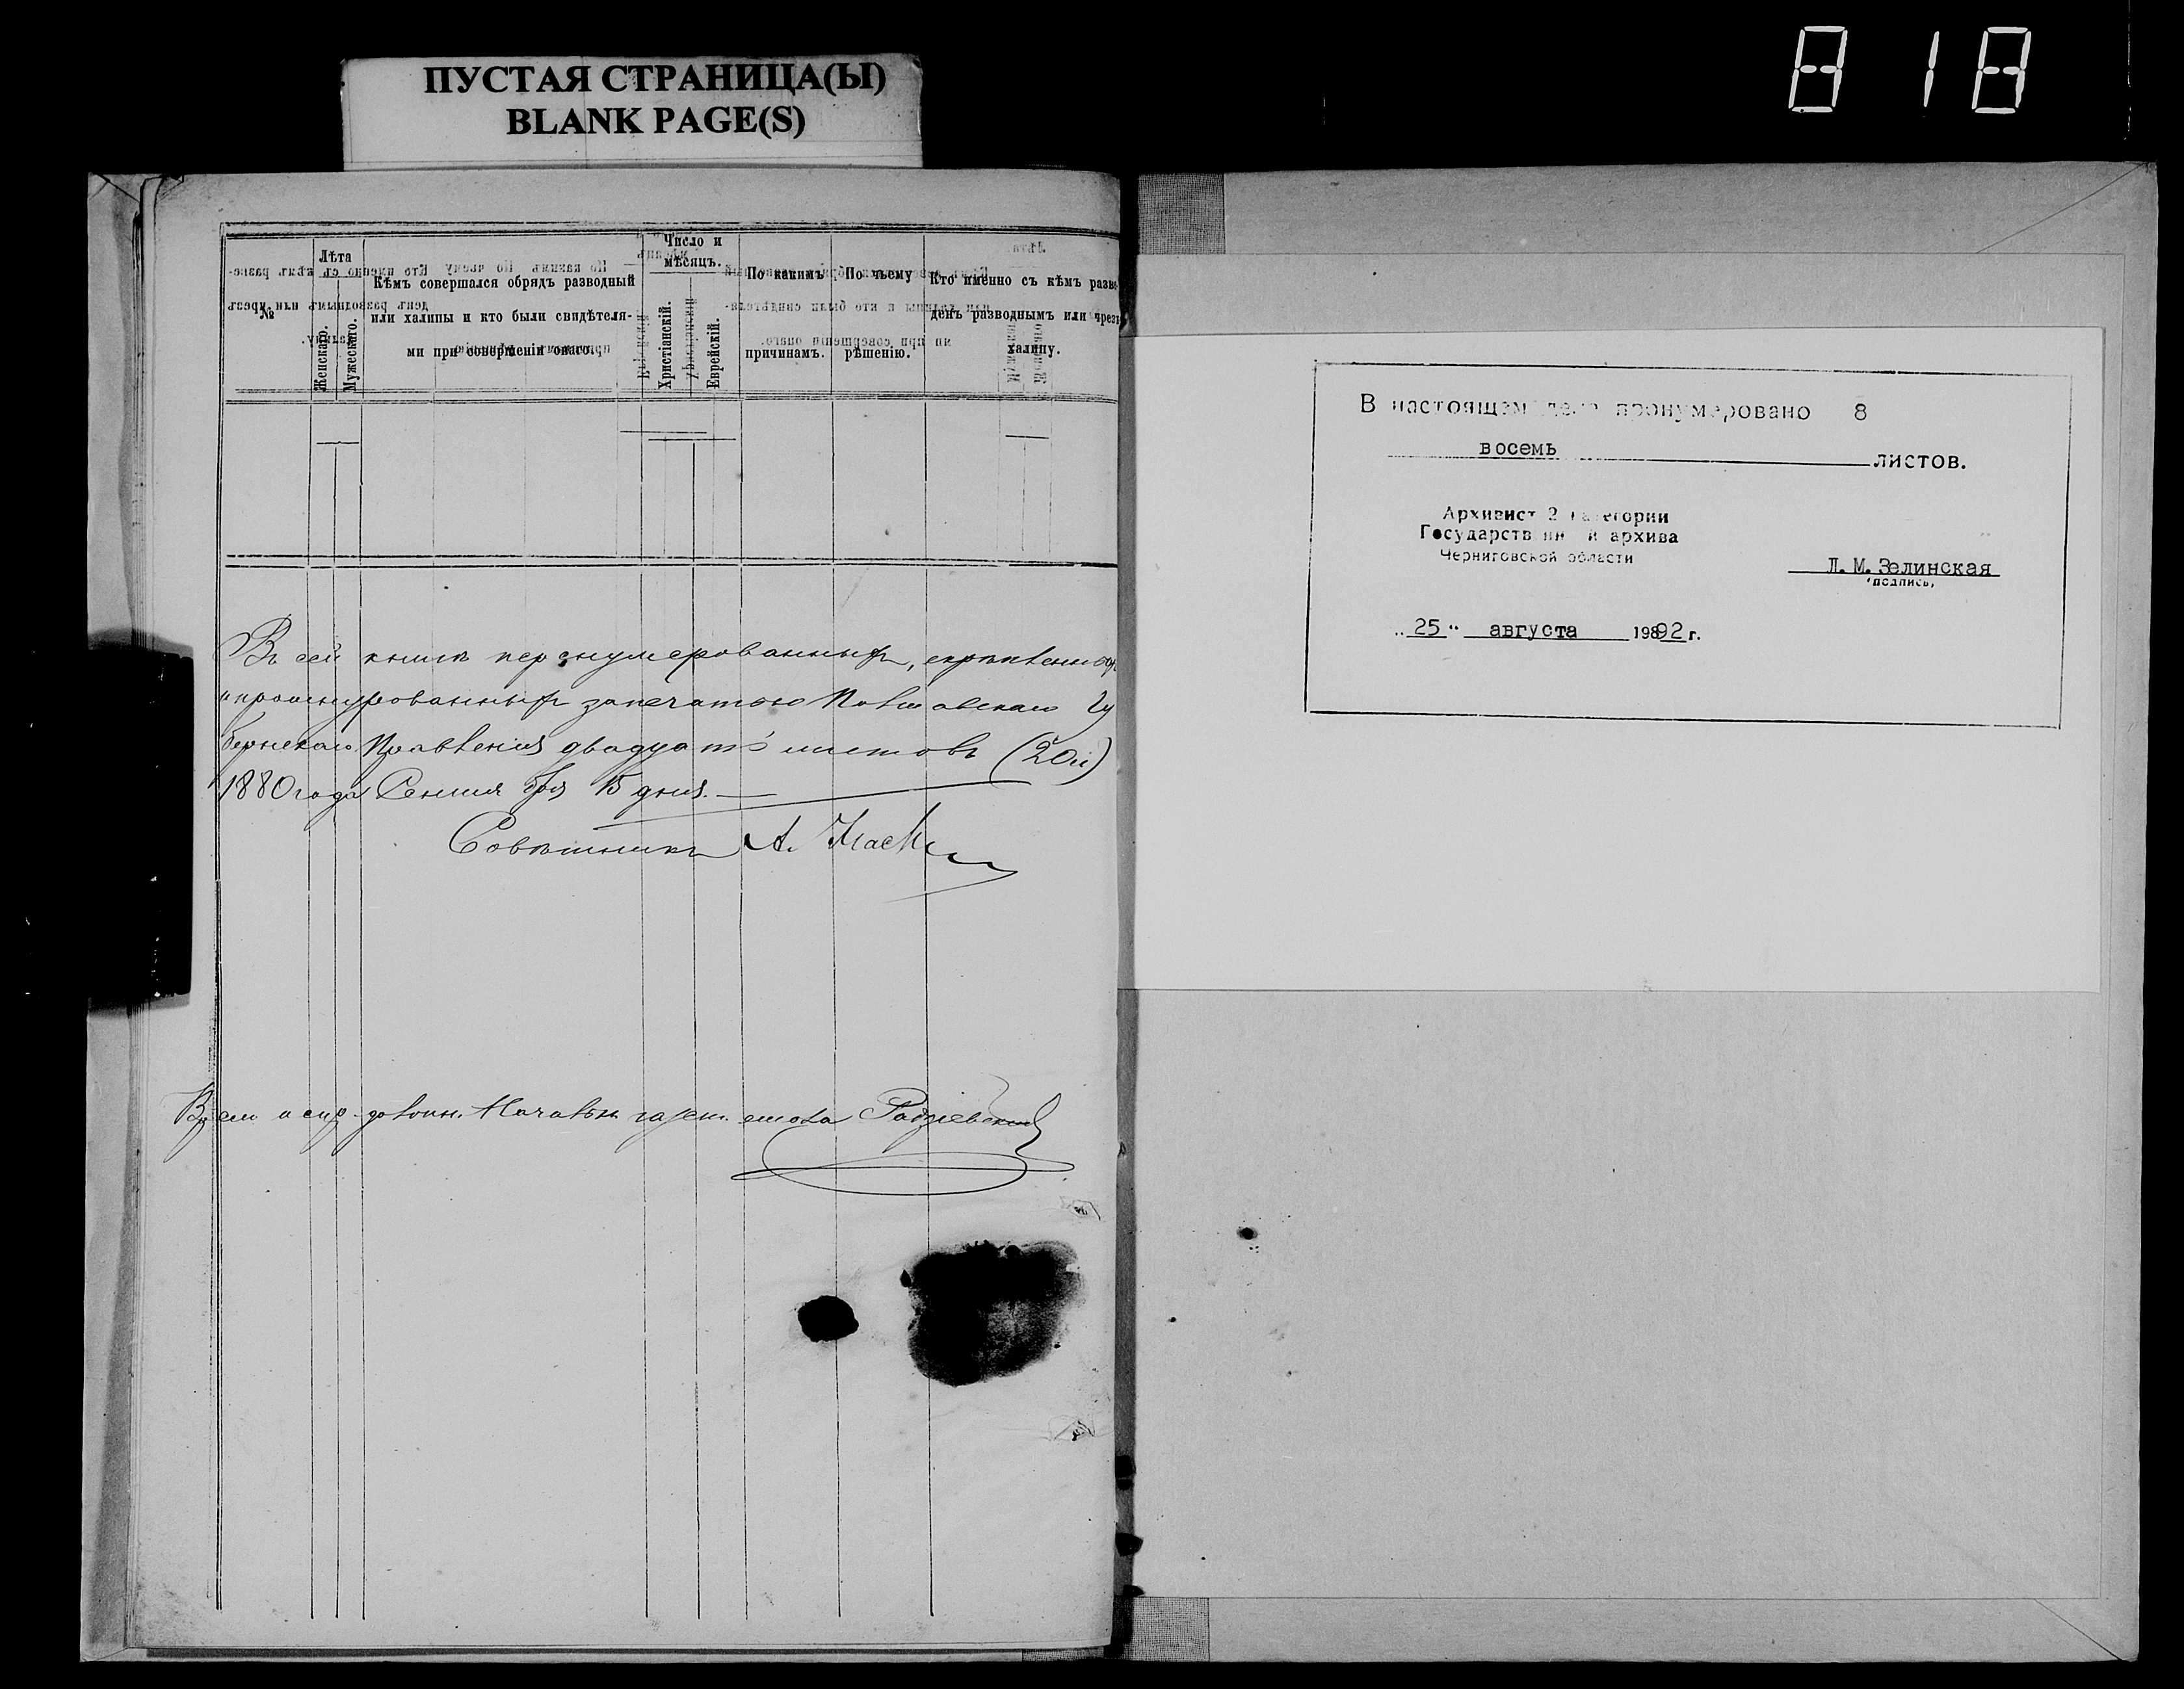 ПУСТАЯ СТРАНИЦА(Ы)
BLANK PAGE(S)
818
№
Лѣта
Женскаго.
Мужескаго.
Кѣмъ совершался обрядъ разводный
или халипы и кто были свидѣтеля-
ми при совершеніи онаго.
Число и
мѣсяцъ.
Христіанскій.
Еврейскій.
По какимъ
причинамъ.
По чьему
рѣшенію.
Кто именно съ кѣмъ разве-
денъ разводнымъ или чрезъ
халицу.
Въ сей книгѣ перенумерованныхъ, скрѣпленныхъ
и прошнурованныхъ за печатью Полтавскаго Гу
бернскаго Правленія двадцать листовъ (20 л)
1880 года Сентября 15 дня.
Совѣтникъ А.
стола Радзіевскій
В настоящем деле пронумеровано 8
восемь листов.
Архивист 2 категории
Государственного архива
Черниговской области
Л.М.Зелинская
(подпись)
"25" августа 1992 г.